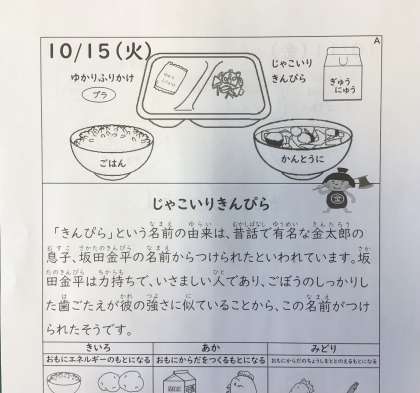 A
10/15(火)
ゆかりふりかけ
プラ
じゃこいり
きんぴら
ぎゅう
にゅう
ごはん
かんとうに
じゃこいりきんぴら
「きんぴら」という名前の由来は、昔話で有名な金太郎の
息子、坂田金平の名前からつけられたといわれています。坂
田金平は力持ちで、いさましい人であり、ごぼうのしっかりし
た歯ごたえが彼の強さに似ていることから、この名前がつけ
られたそうです。
きいろ あか みどり
おもにエネルギーのもとになる おもにからだをつくるもとになる おもにからだのちょうしをととのえるもとになる